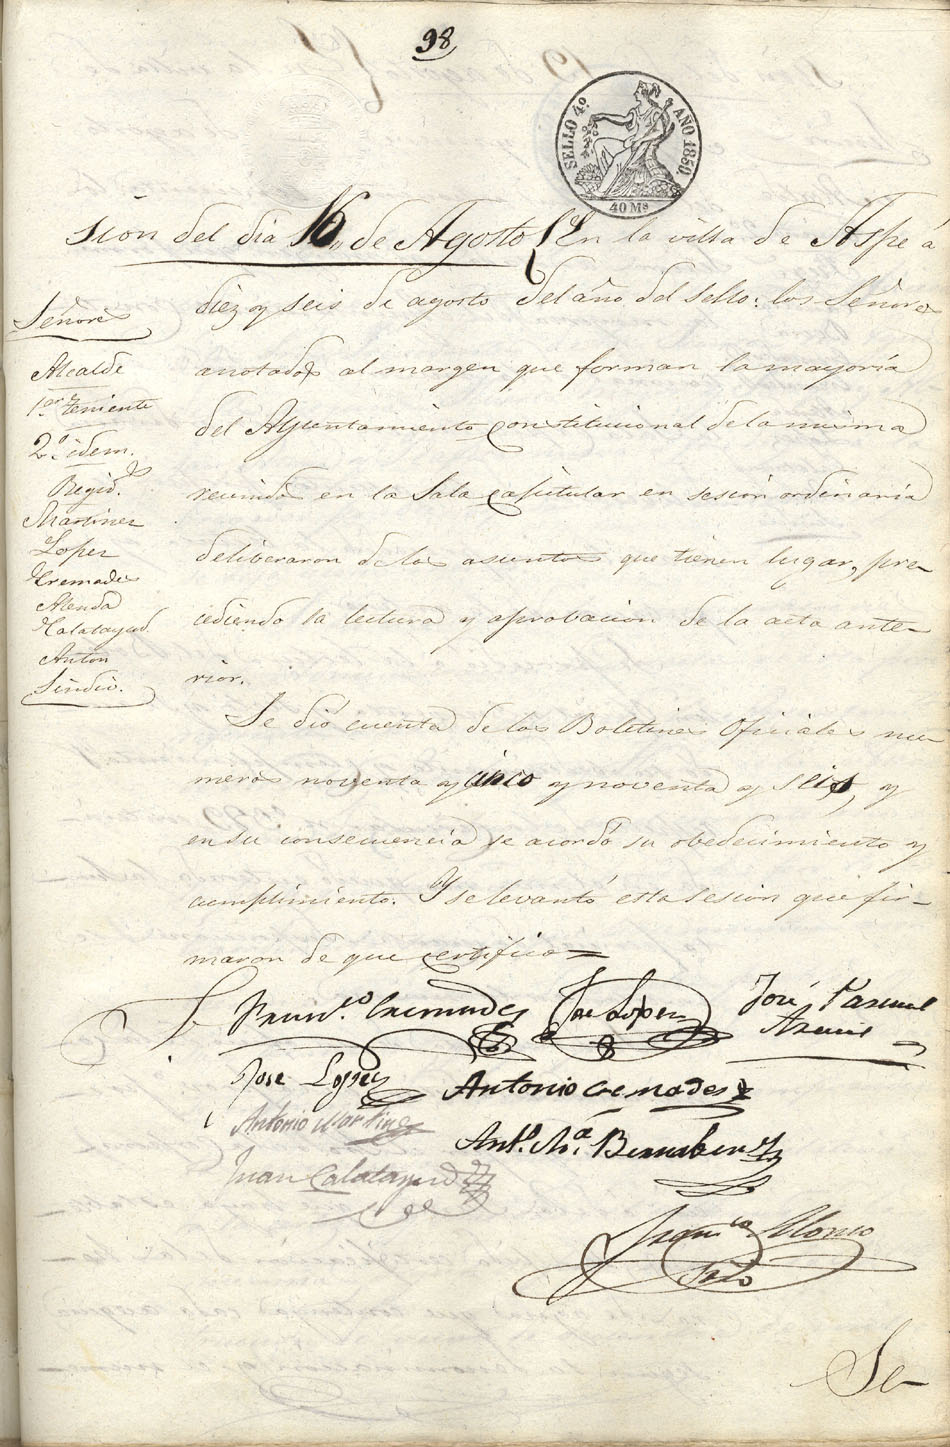 98
SELLO 4º AÑO 1850.
40 Ms
sion del dia 16,, de Agosto En la villa de Aspe á
diez y seis de agosto del año del sello: los Señores
anotados al margen que forman la mayoría
del Ayuntamiento constitucional de la misma
reunidos en la Sala capitular en sesión ordinaria
deliberaron de los asuntos que tienen lugar, pre-
cediendo la lectura y aprobacion de la acta ante-
rior.
Señores
Alcalde
1er Teniente
2º idem.
Regid.s
Martinez
Lopez
Cremades
Alenda
Calatayud
Anton
Sindico.
Se dió cuenta de los Boletines Oficiales nu-
meros noventa y cinco y noventa y seis, y
en su consecuencia se acordó su obedecimiento y
cumplimiento. Y se levantó esta sesion que fir-
maron de que certifico=
Franco. Cremades Jose Lopez José Pascual
Jose Lopez Antonio Cremades
Antonio Martinez
Anto. Ma. Bernabeu
Juan Calatayud
Alonso
Srio
Se-